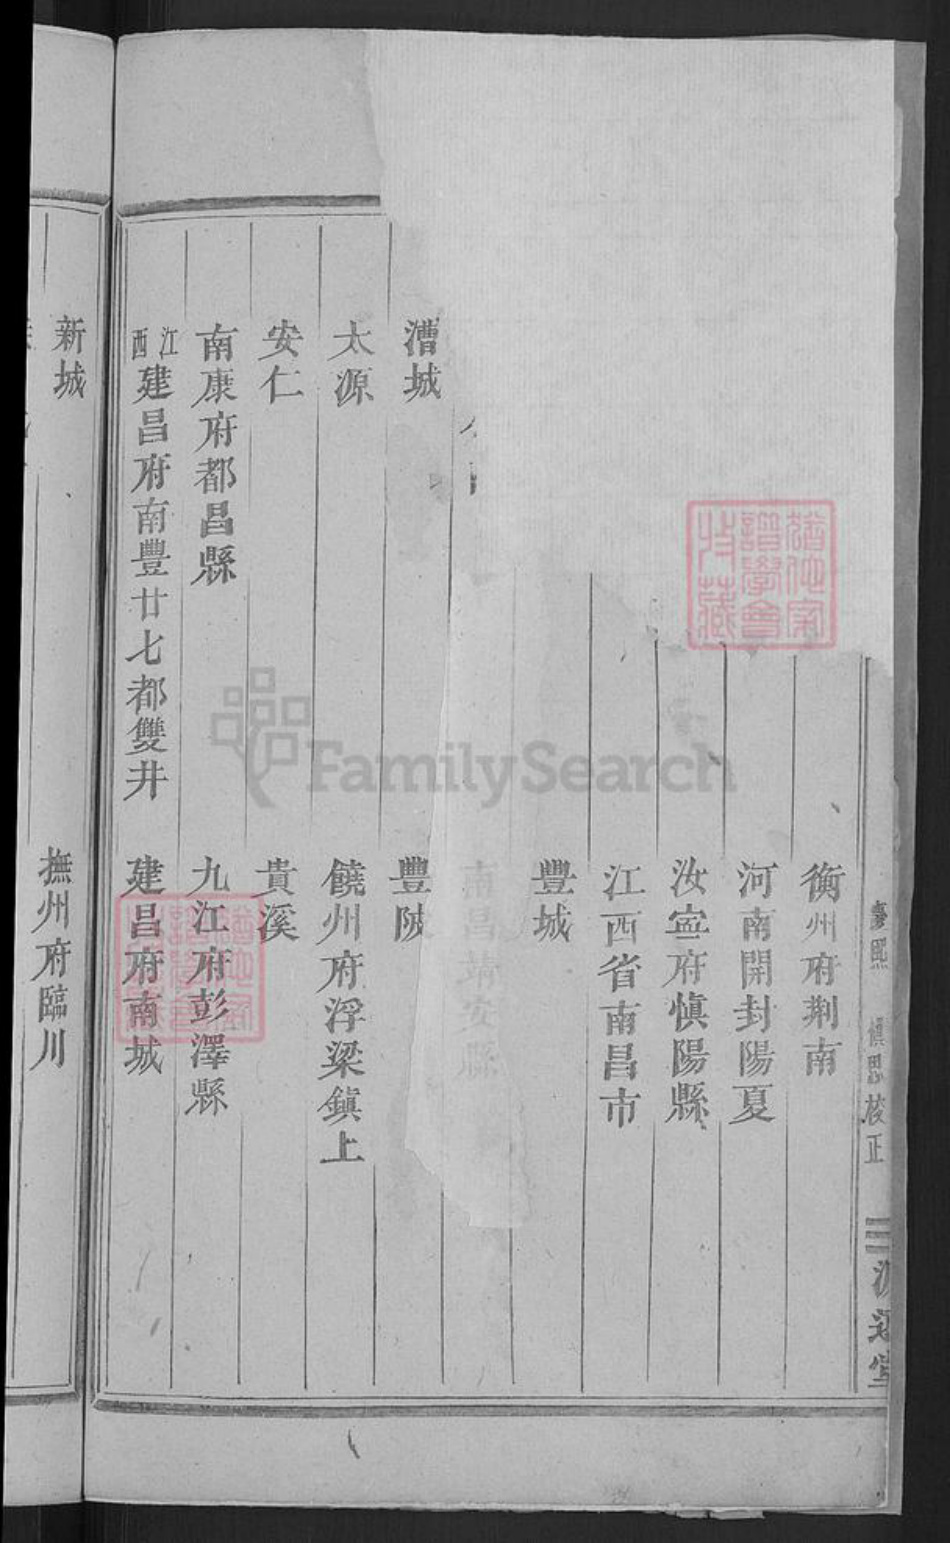 慎思校正
衡州府荆南
河南開封陽夏
汝寍府慎陽縣
江西省南昌市
豐城
南昌靖安縣
漕城
豐陂
太源
饒州府浮梁鎮上
安仁
貴溪
南康府都昌縣
九江府彭澤縣
江西建昌府南豐廿七都雙井
建昌府南城
新城
撫州府臨川
FamilySearch